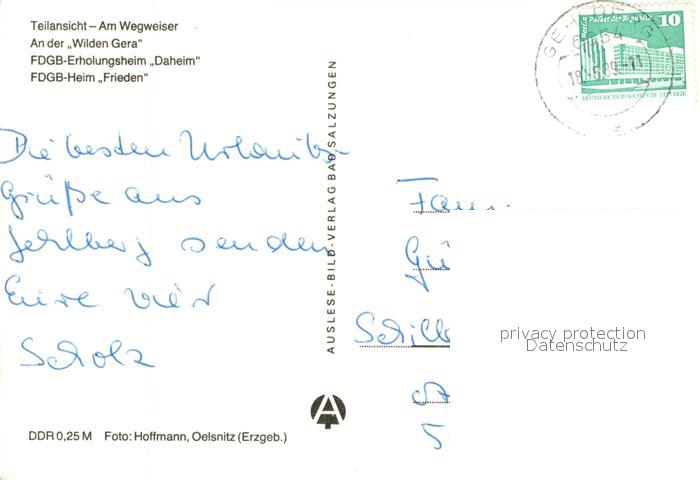 Teilansicht – Am Wegweiser
An der „Wilden Gera“
FDGB-Erholungsheim „Daheim“
FDGB-Heim „Frieden“
Berlin Palast der Republik 10
DEUTSCHE DEMOKRATISCHE REPUBLIK
Die besten Urlaubs
Grüße aus
senden
Eure vier
Scholz
AUSLESE-BILD-VERLAG BAD SALZUNGEN
Fam
Gü
Schill
5
privacy protection
Datenschutz
A
DDR 0,25 M Foto: Hoffmann, Oelsnitz (Erzgeb.)